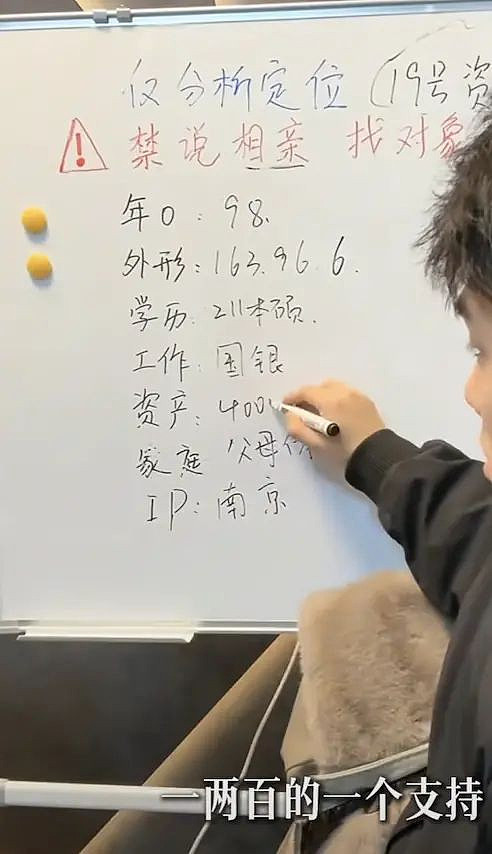 仅分析定位（19号资
禁说相亲 找对象
年0：98.
外形：163.96.6.
学历：211本硕.
工作：国银
资产：400
家庭 父母
IP：南京
一两百的一个支持